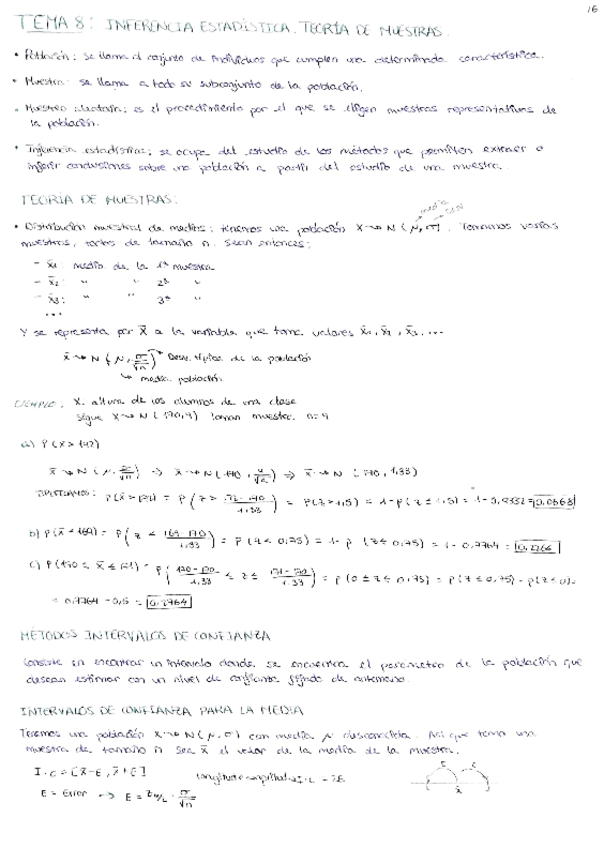 16
TEMA 8: INFERENCIA ESTADÍSTICA. TEORÍA DE MUESTRAS.
• Población: se llama al conjunto de individuos que cumplen una determinada característica.
• Muestra: se llama a todo su subconjunto de la población.
• Muestreo aleatorio: es el procedimiento por el que se eligen muestras representativas de
la población.
• Inferencia estadística: se ocupa del estudio de los métodos que permiten extraer o
inferir conclusiones sobre una población a partir del estudio de una muestra.
TEORÍA DE MUESTRAS:
media
• Distribución muestral de medias: tenemos una población X → N (μ, σ). Tomamos varias
muestras, todas de tamaño n. Sean entonces:
- x̄1: media de la 1ª muestra
- x̄2: " " 2ª "
- x̄3: " " 3ª "
...
Y se representa por X̄ a la variable que toma valores x̄1, x̄2, x̄3, ...
x̄ → N (μ, σ/√n) Desv. típica de la población
↳ media población
EJEMPLO: X. altura de los alumnos de una clase
sigue X → N (170,4) toman muestra n=9
a) P(X̄ > 172)
x̄ → N (μ, σ/√n) → x̄ → N (170, 4/√9) ⇒ x̄ → N (170, 1,33)
TIPIFICAMOS: P(x̄ > 172) = P(z > 172-170/1,33) = P(z > 1,5) = 1 - P(z ≤ 1,5) = 1 - 0,9332 = 0,0668
b) P(x̄ < 169) = P(z < 169-170/1,33) = P(z < 0,75) = 1 - P(z ≤ 0,75) = 1 - 0,7764 = 0,2266
c) P(170 ≤ x̄ ≤ 171) = P(170-170/1,33 ≤ z ≤ 171-170/1,33) = P(0 ≤ z ≤ 0,75) = P(z ≤ 0,75) - P(z ≤ 0) =
= 0,7764 - 0,5 = 0,2764
MÉTODOS INTERVALOS DE CONFIANZA
Consiste en encontrar un intervalo donde se encuentra el parámetro de la población que
desean estimar con un nivel de confianza fijado de antemano.
INTERVALOS DE CONFIANZA PARA LA MEDIA
Tenemos una población X → N (μ, σ) con media μ desconocida. Así que tomo una
muestra de tamaño n. Sea x̄ el valor de la media de la muestra.
I.C = [x̄-E, x̄+E]
E = Error → E = Zα/2 · σ/√n
E E
x̄